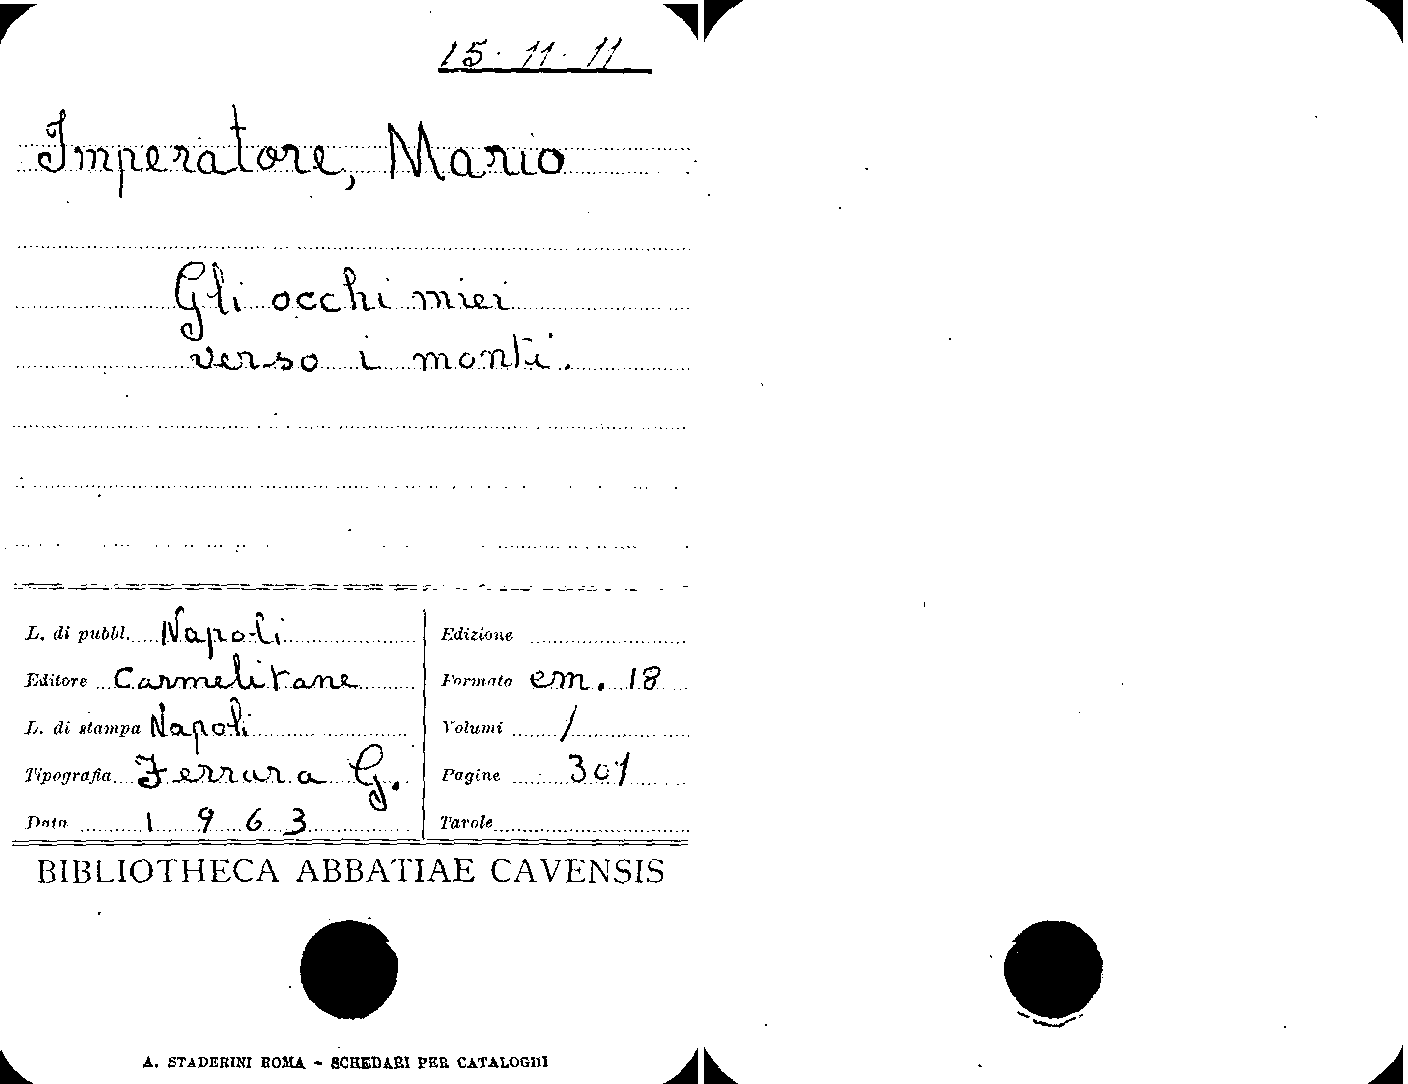 15. 11. 11
Imperatore, Mario
Gli occhi miei
verso i monti.
L. di pubbl. Napoli
Editore Carmelitane
L. di stampa Napoli
Tipografia Ferrara G.
Data 1963
Edizione
Formato em. 18
Volumi 1
Pagine 301
Tavole
BIBLIOTHECA ABBATIAE CAVENSIS
A. STADERINI ROMA - SCHEDARI PER CATALOGHI